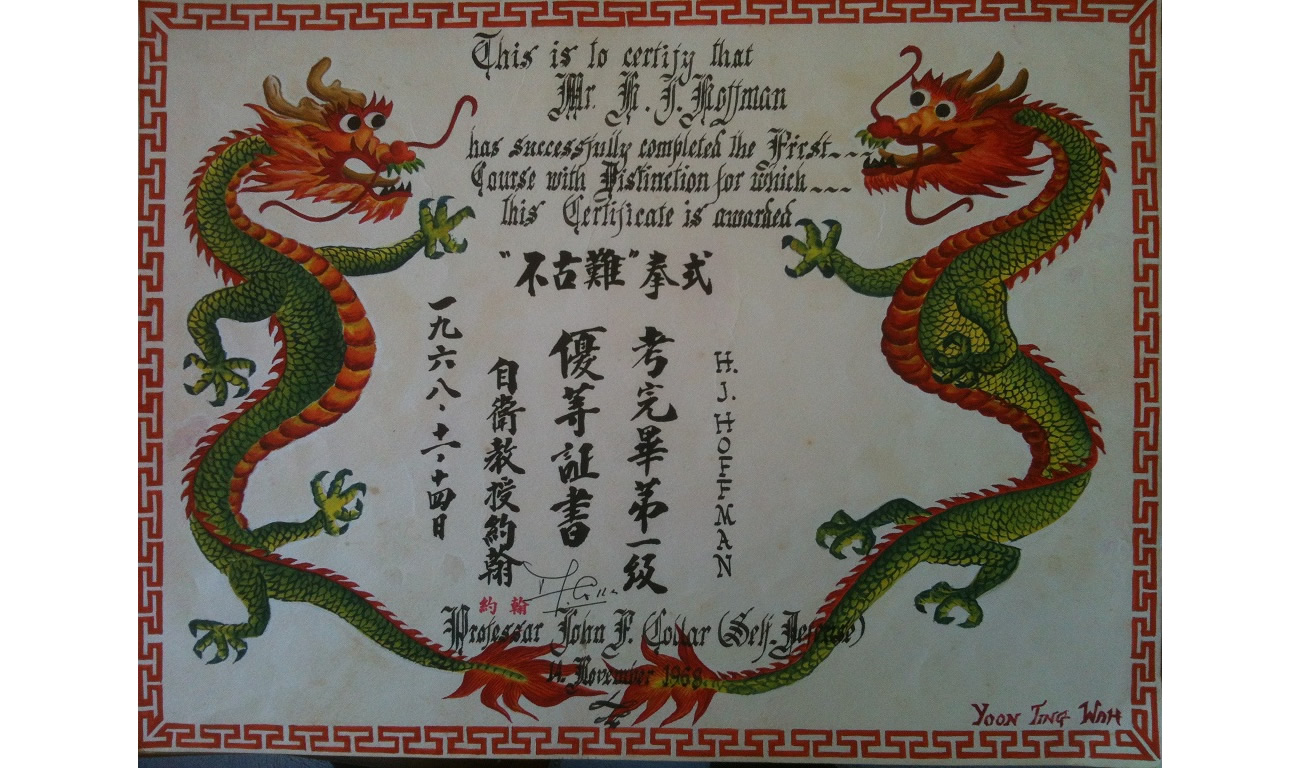 This is to certify that
Mr. H. J. Hoffman
has successfully completed the First
Course with Distinction for which
this Certificate is awarded
"不古難"拳式
H. J. HOFFMAN
考完畢第一級
優等証書
自衛教授約翰
一九六八·十一·十四日
約翰
Professor John F. Collar (Self-Defense)
14. November 1968.
YOON TING WAH